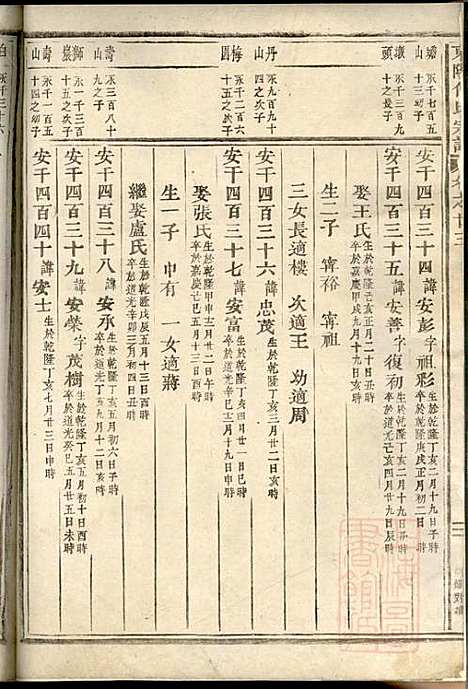 瓊山
永千七百五十三幼子
安千四百三十四諱安彭字祖彤生於乾隆丁亥二月十九日子時卒於乾隆庚戌正月初二日
墩頭
永千八百五十之長子
安千四百三十五諱安善字復初生於乾隆丁亥二月十九日子時卒於道光己亥四月廿九日辰時
娶王氏生於乾隆己亥正月二十日丑時卒於嘉慶甲戌九月十九日子時
生二子 甯裕 甯祖
三女長適樓 次適王 幼適周
丹山
永九百九十八之次子
安千四百三十六諱忠茂生於乾隆丁亥三月廿二日亥時
梅
永千二百六十五之次子
安千四百三十七諱安富生於乾隆丁亥四月廿一日巳時卒於道光辛巳十月廿三日申時
娶張氏生於乾隆甲申十二月廿二日午時卒於嘉慶己巳五月十三日酉時
生一子 中有 一女適蔣
繼娶盧氏生於乾隆戊辰五月十三日酉時卒於道光辛卯三月初二日亥時
壽山
永三百八十九之子
安千四百三十八諱安永生於乾隆丁亥五月初六日子時卒於道光丁亥九月十二日亥時
獅巖
永一千三百五十之次子
安千四百三十九諱安榮字茂樹生於乾隆丁亥五月初十日亥時卒於道光癸巳五月廿五日未時
壽山
永千一百五十四之幼子
安千四百四十諱安士生於乾隆丁亥七月廿三日申時